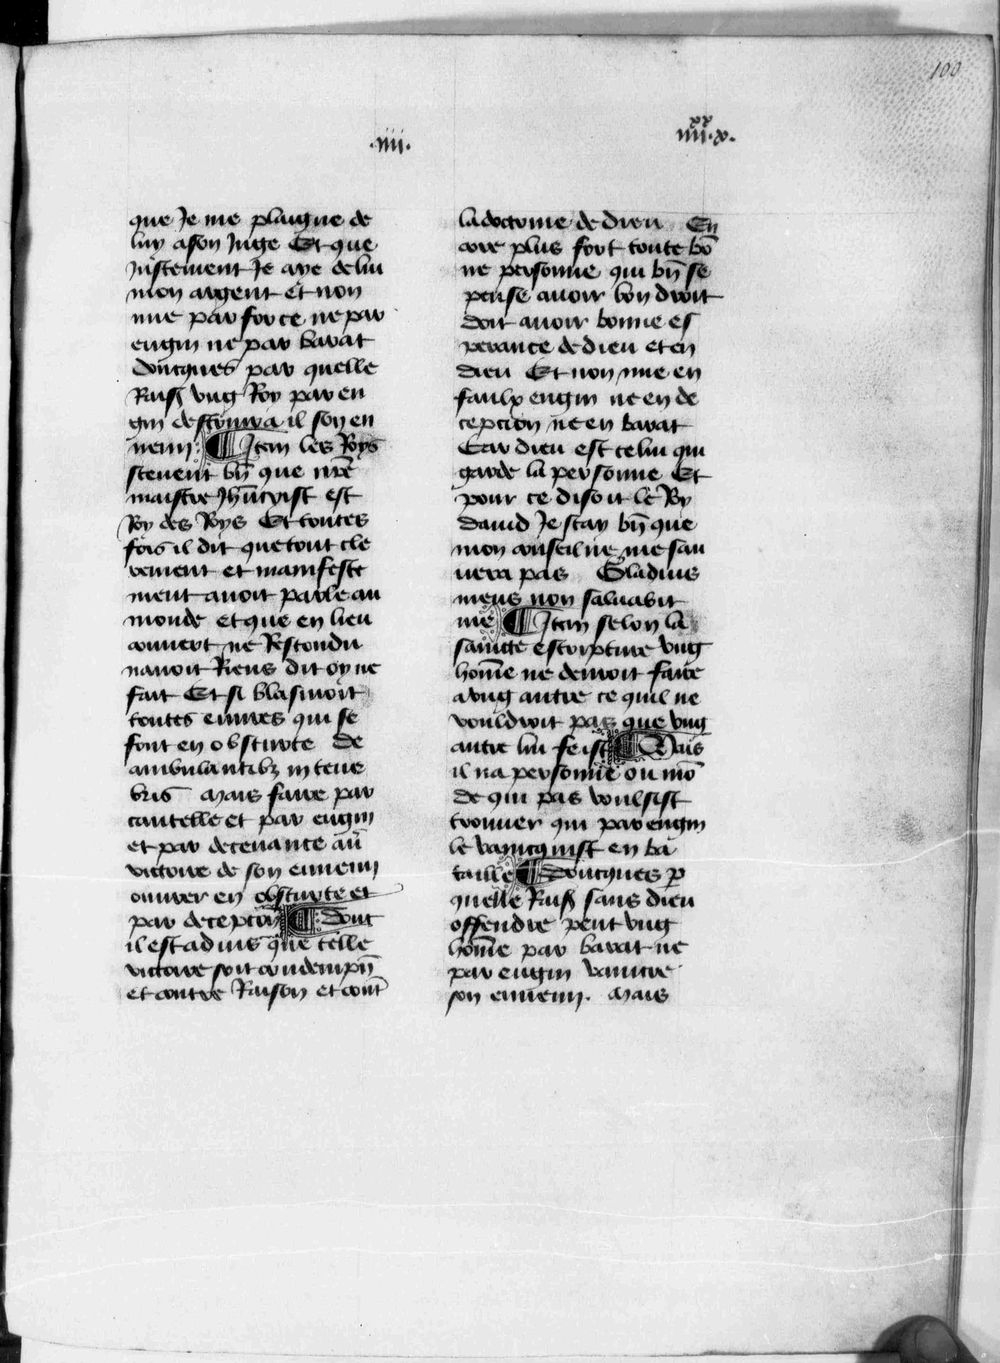 100
.iiii.
iiii.xx x.
que Je me plaigne de
luy a son Juge Et que
Justement Je aye de lui
mon argent et non
mie par force ne par
engin ne par barat
doncques par quelle
Raisō ung Roy par en
gin destruira il son en
nemi ¶ Item les Roys
scevent bñ que nr̄e
maistre Jhūcrist est
Roy des Roys Et toutes
fois il dit que tout cle
rement et manifeste
ment avoit parle au
monde et que en lieu
couvert ne Rescondu
navoit Riens dit oy ne
fait Et si blasmoit
toutes euvres qui se
font en obscurte de
ambulantibz in tene
bris Mais faire par
cautelle et par engin
et par decevance au
victoire de son ennemi
ouvrer en obscurte et
par decepcion ¶ Dont
il est advis que telle
victoire soit condempñ
et contre Raison et cont̄
la doctrine de dieu En
core plus fort toute bō
ne personne qui bñ se
pense avoir bon droit
doit avoir bonne es
perance de dieu et en
dieu Et non mie en
faulx engin ne en de
cepcion ne en barat
Car dieu est celui qui
garde la personne Et
pour ce disoit le Roy
david Je scay bñ que
mon conseil ne me sau
vera pas Gladius
meus non salvabit
me ¶ Item selon la
saincte escripture ung
hōme ne devroit faire
a ung autre ce quil ne
vouldroit pas que ung
autre lui feist ¶ Mais
il na personne ou mō
de qui pas voulsist
trouver qui par engin
le vainquist en ba
taille ¶ Doncques p̄
quelle Raisō sans dieu
offendre peut ung
hōme par barat ne
par engin vaincre
son ennemi. Mais